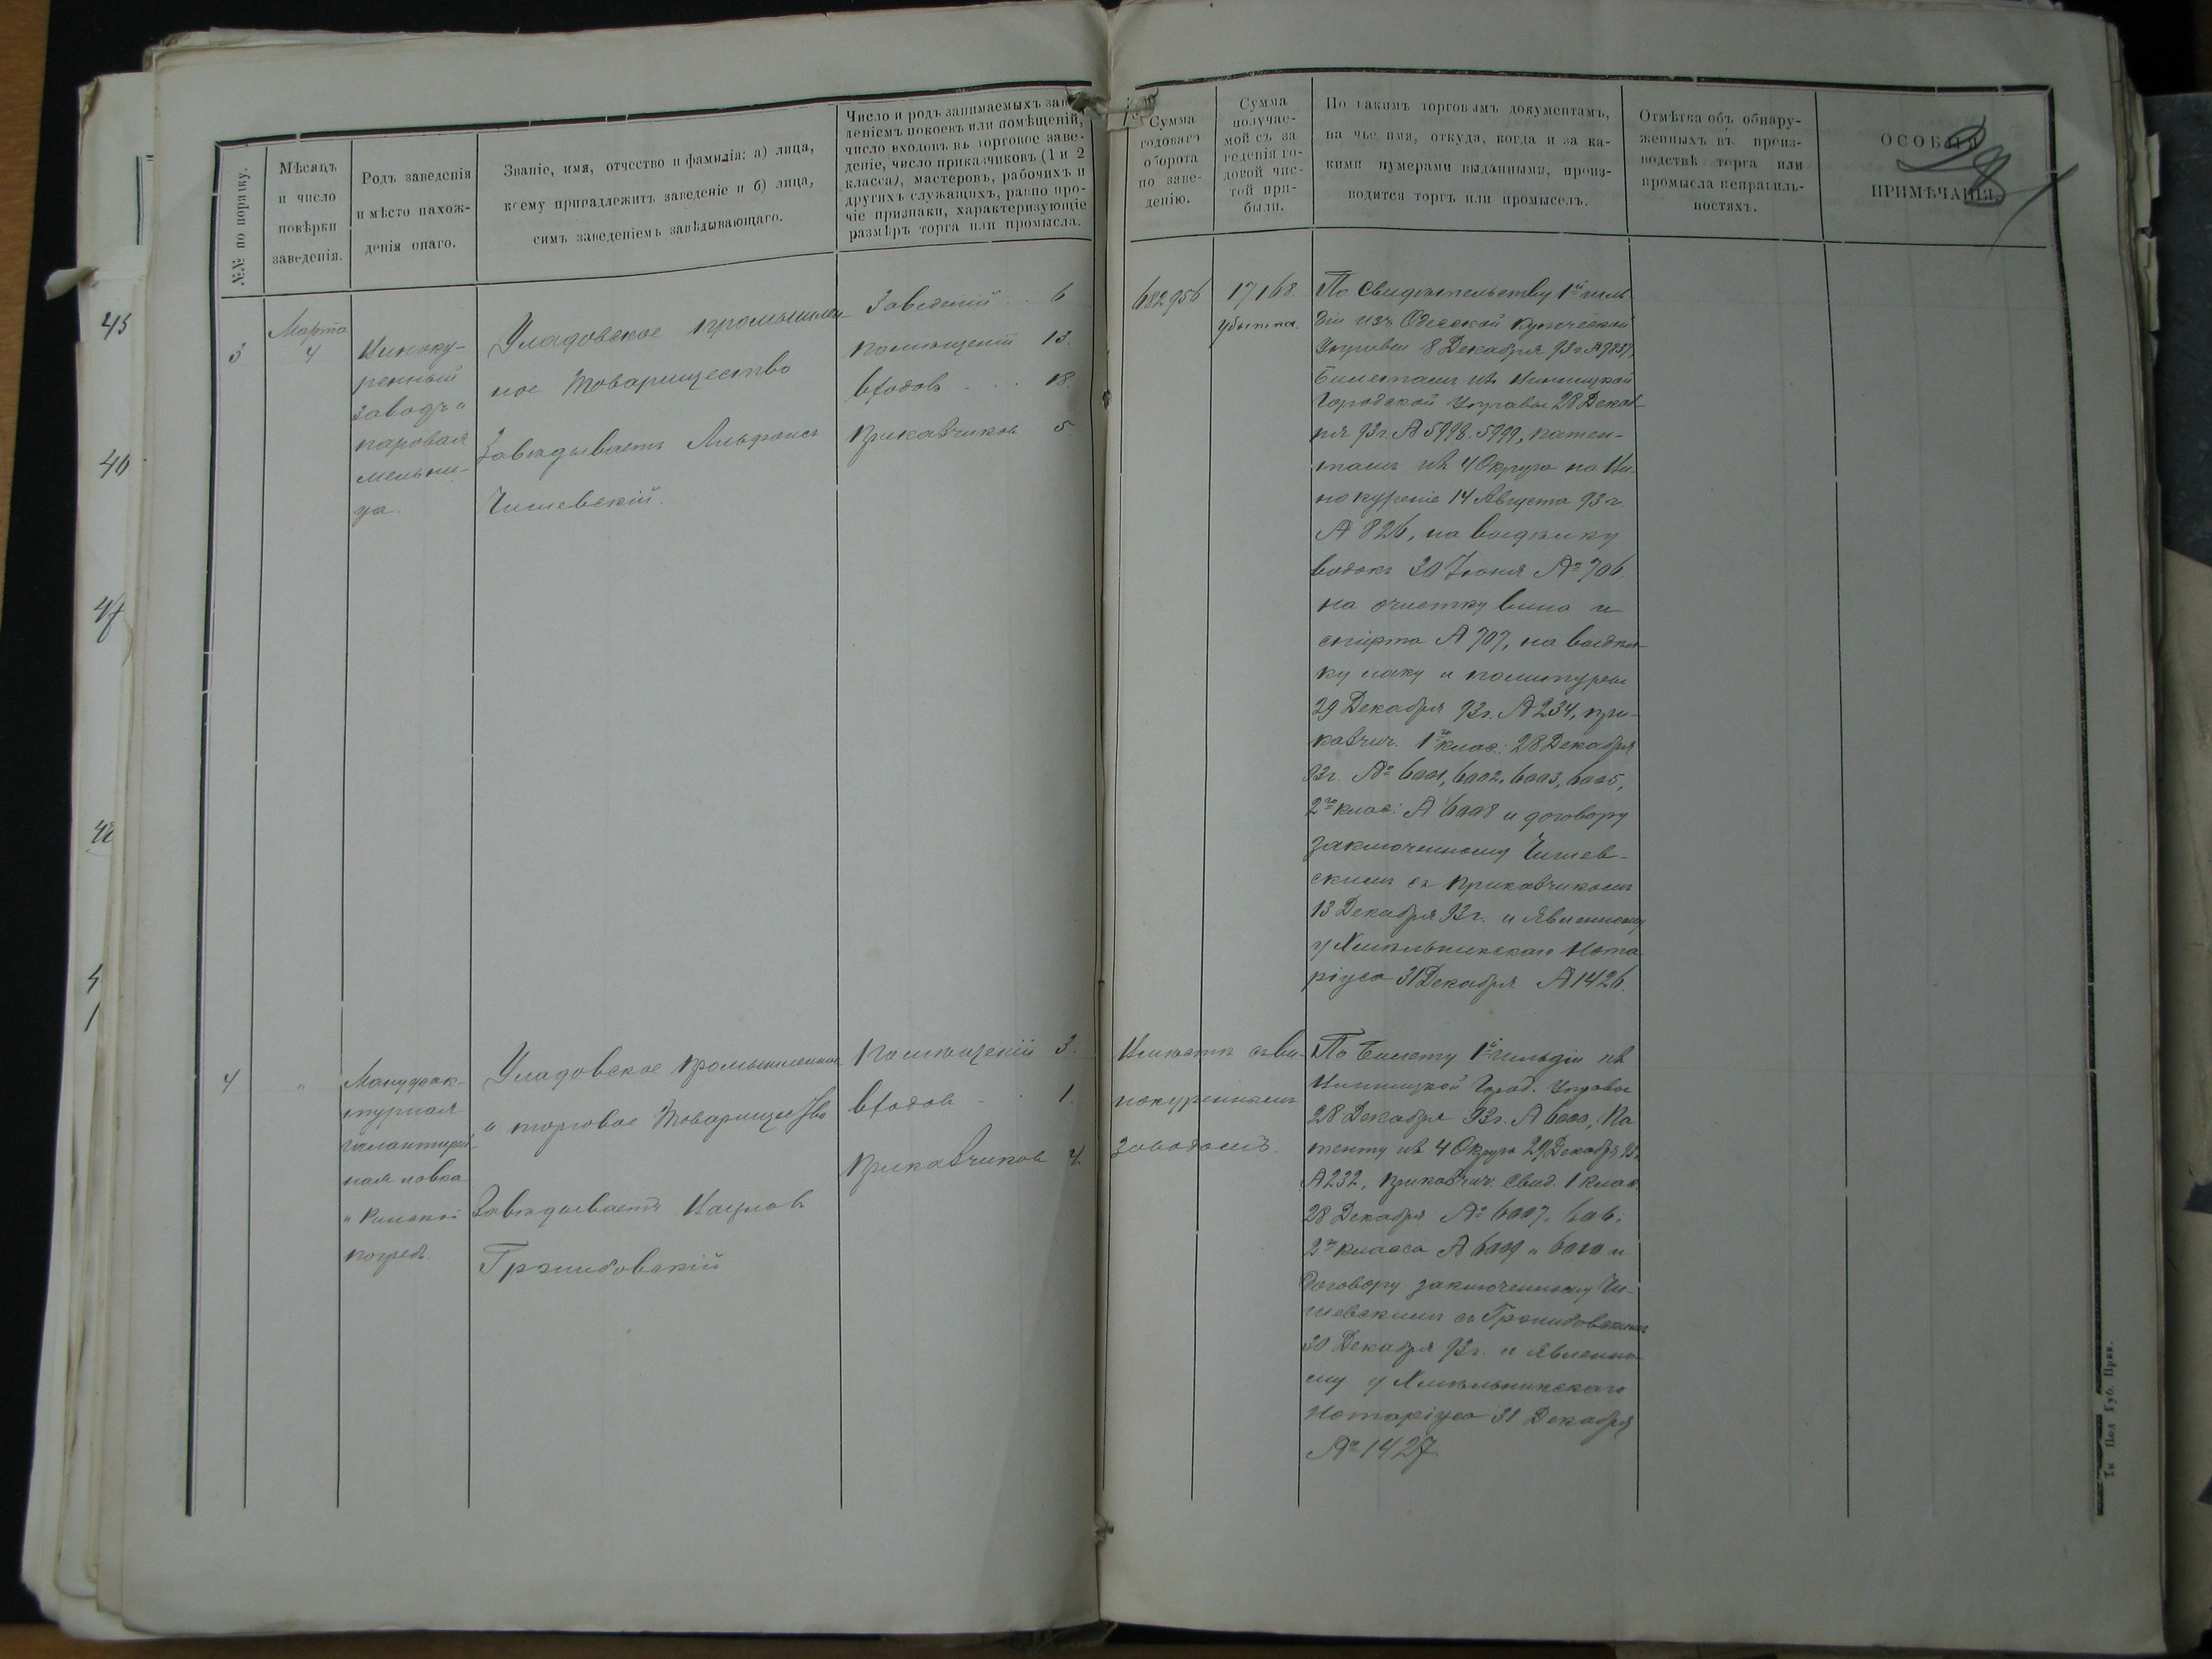 №№ по порядку.
Мѣсяцъ
и число
повѣрки
заведенія.
Родъ заведенія
и мѣсто нахож-
денія онаго.
Званіе, имя, отчество и фамилія: а) лица,
коему принадлежитъ заведеніе и б) лица,
симъ заведеніемъ завѣдывающаго.
Число и родъ занимаемыхъ заве-
деніемъ покоевъ или помѣщеній,
число входовъ въ торговое заве-
деніе, число приказчиковъ (1 и 2
класса), мастеровъ, рабочихъ и
другихъ служащихъ, равно про-
чіе признаки, характеризующіе
размѣръ торга или промысла.
Сумма
годоваго
оборота
по заве-
денію.
Сумма
получае-
мой съ за
веденія го-
довой чис-
той при-
были.
По какимъ торговымъ документамъ,
на чье имя, откуда, когда и за ка-
кими нумерами выданными, произ-
водится торгъ или промыселъ.
Отмѣтка объ обнару-
женныхъ въ произ-
водствѣ торга или
промысла неправиль-
ностяхъ.
ОСОБЫЯ
ПРИМѢЧАНІЯ.
3
Марта
4
Виноку-
ренный
заводъ и
паровая
мельни-
ца.
Уладовское промышлен-
ное Товарищество
Завѣдываетъ Альфонсъ
Чишевскій.
Заведеній . . 6
помѣщеній 13.
входовъ . . . 18.
приказчиковъ 5.
682956
17168.
убытка.
По Свидѣтельству 1й гиль
діи изъ Одесской Купеческой
Управы 8 Декабря 93 г. № 9837,
Билетамъ изъ Винницкой
Городской Управы 28 Декаб-
ря 93 г. № 5998-5999, патен-
тамъ изъ 4 Округа на Ви-
нокуреніе 14 Августа 93 г.
№ 826, на выдѣлку
водокъ 30 Іюня № 706.
на очистку вина и
спирта № 707, на выдѣл-
ку лаку и политуры
29 Декабря 93 г. № 234, при-
казчич. 1го клас: 28 Декабря
93 г. № 6001, 6002, 6003, 6005,
2го клас: № 6008 и договору
заключенному Чишев-
скимъ съ приказчикомъ
13 Декабря 93 г. и явленному
у Хмѣльникскаго Нота
ріуса 31 Декабря № 1426.
4
"
Мануфак-
турная
галантерей-
ная лавка
и Ринскій
погребъ.
Уладовское промышленное
и торговое Товарищество
Завѣдываетъ Вацлавъ
Грэмбовскій
помѣщеній 3.
входовъ . . 1.
приказчиковъ 4.
Вмѣстѣ съ ви-
нокуреннымъ
заводомъ.
По Билету 1й гильдіи изъ
Винницкой Город. Управы
28 Декабря 93 г. № 6000, Па
тенту изъ 4 Округа 29 Декабря 93 г.
№ 232, приказчич. свид. 1 клас.
28 Декабря № 6007,
2го класса № 6009 и 6010 и
Договору заключенному Чи-
шевскимъ съ Грэмбовскимъ
30 Декабря 93 г. и явленно-
му у Хмѣльникскаго
Нотаріуса 31 Декабря
№ 1427.
45
46
47
Ти Под Губ. Прав.